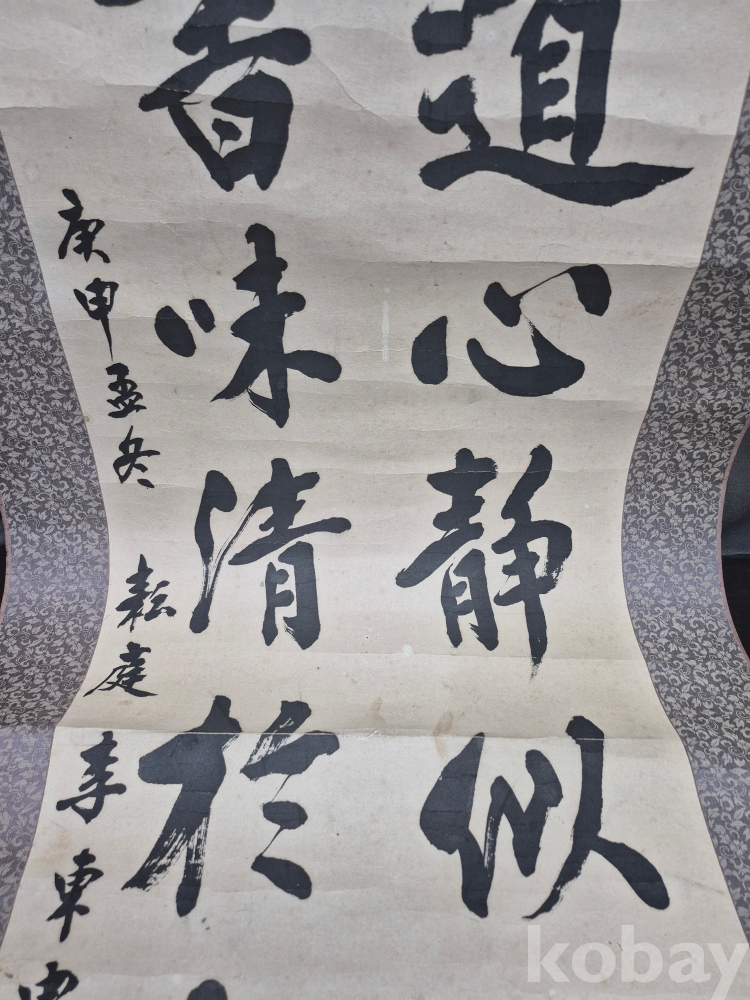 道心静似
書味清於
庚申孟冬 耘庭 李東
kobay